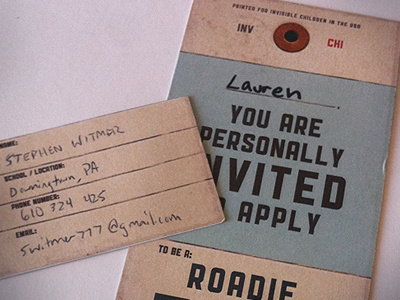 PRINTED FOR INVISIBLE CHILDREN IN THE USA
INV CHI
Lauren
YOU ARE
PERSONALLY
INVITED
APPLY
TO BE A:
ROADIE
NAME:
STEPHEN WITMER
SCHOOL / LOCATION:
Downingtown, PA
PHONE NUMBER:
610 324 425
EMAIL:
switmer777@gmail.com